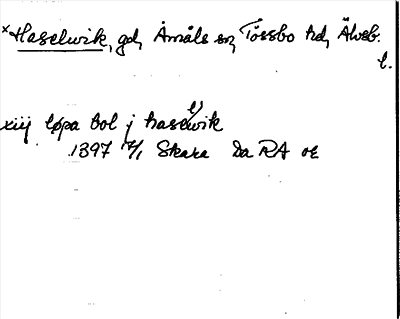 *Haselwik, gd, Åmåls sn, Tössbo hd, Älvsb.
l.
xiij løpa bol j haselwik
1397 7/1 Skara Da RA or